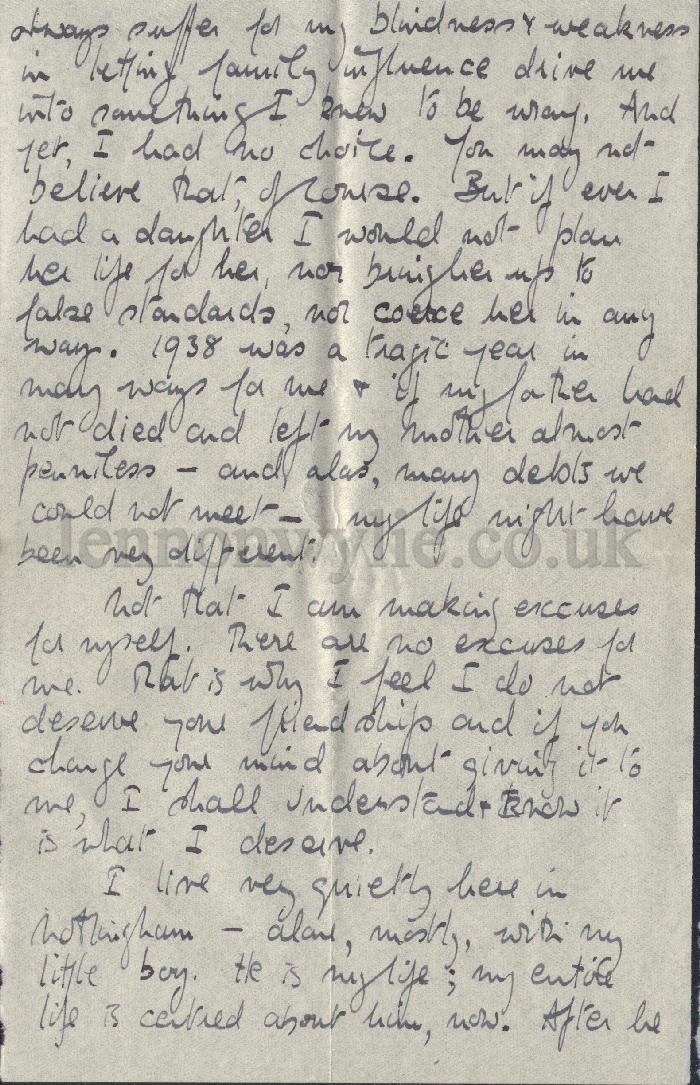 always suffer for my blindness & weakness
in letting family influence drive me
into something I knew to be wrong. And
yet, I had no choice. You may not
believe that, of course. But if ever I
had a daughter I would not plan
her life for her, nor bring her up to
false standards, not coerce her in any
way. 1938 was a tragic year in
many ways for me & if my father had
not died and left my mother almost
penniless – and, alas, many debts we
could not meet – my life might have
been very different.
lennonwylie.co.uk
Not that I am making excuses
for myself. There are no excuses for
me. That is why I feel I do not
deserve your friendship and if you
change your mind about giving it to
me, I shall understand & know it
is what I deserve.
I live very quietly here in
Nottingham – alone, mostly, with my
little boy. He is my life; my entire
life is centred about him, now. After he